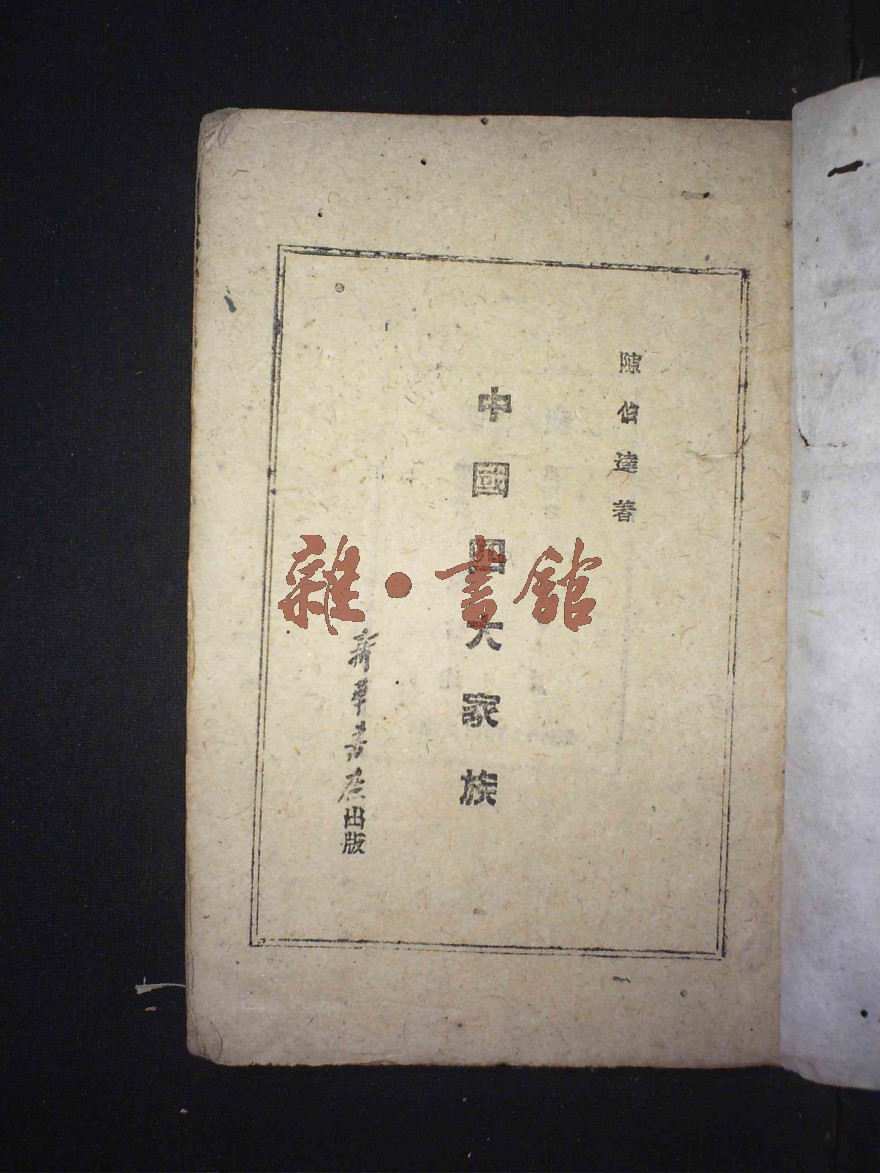 陳伯達著
中國四大家族
新華書店出版
雜·書館